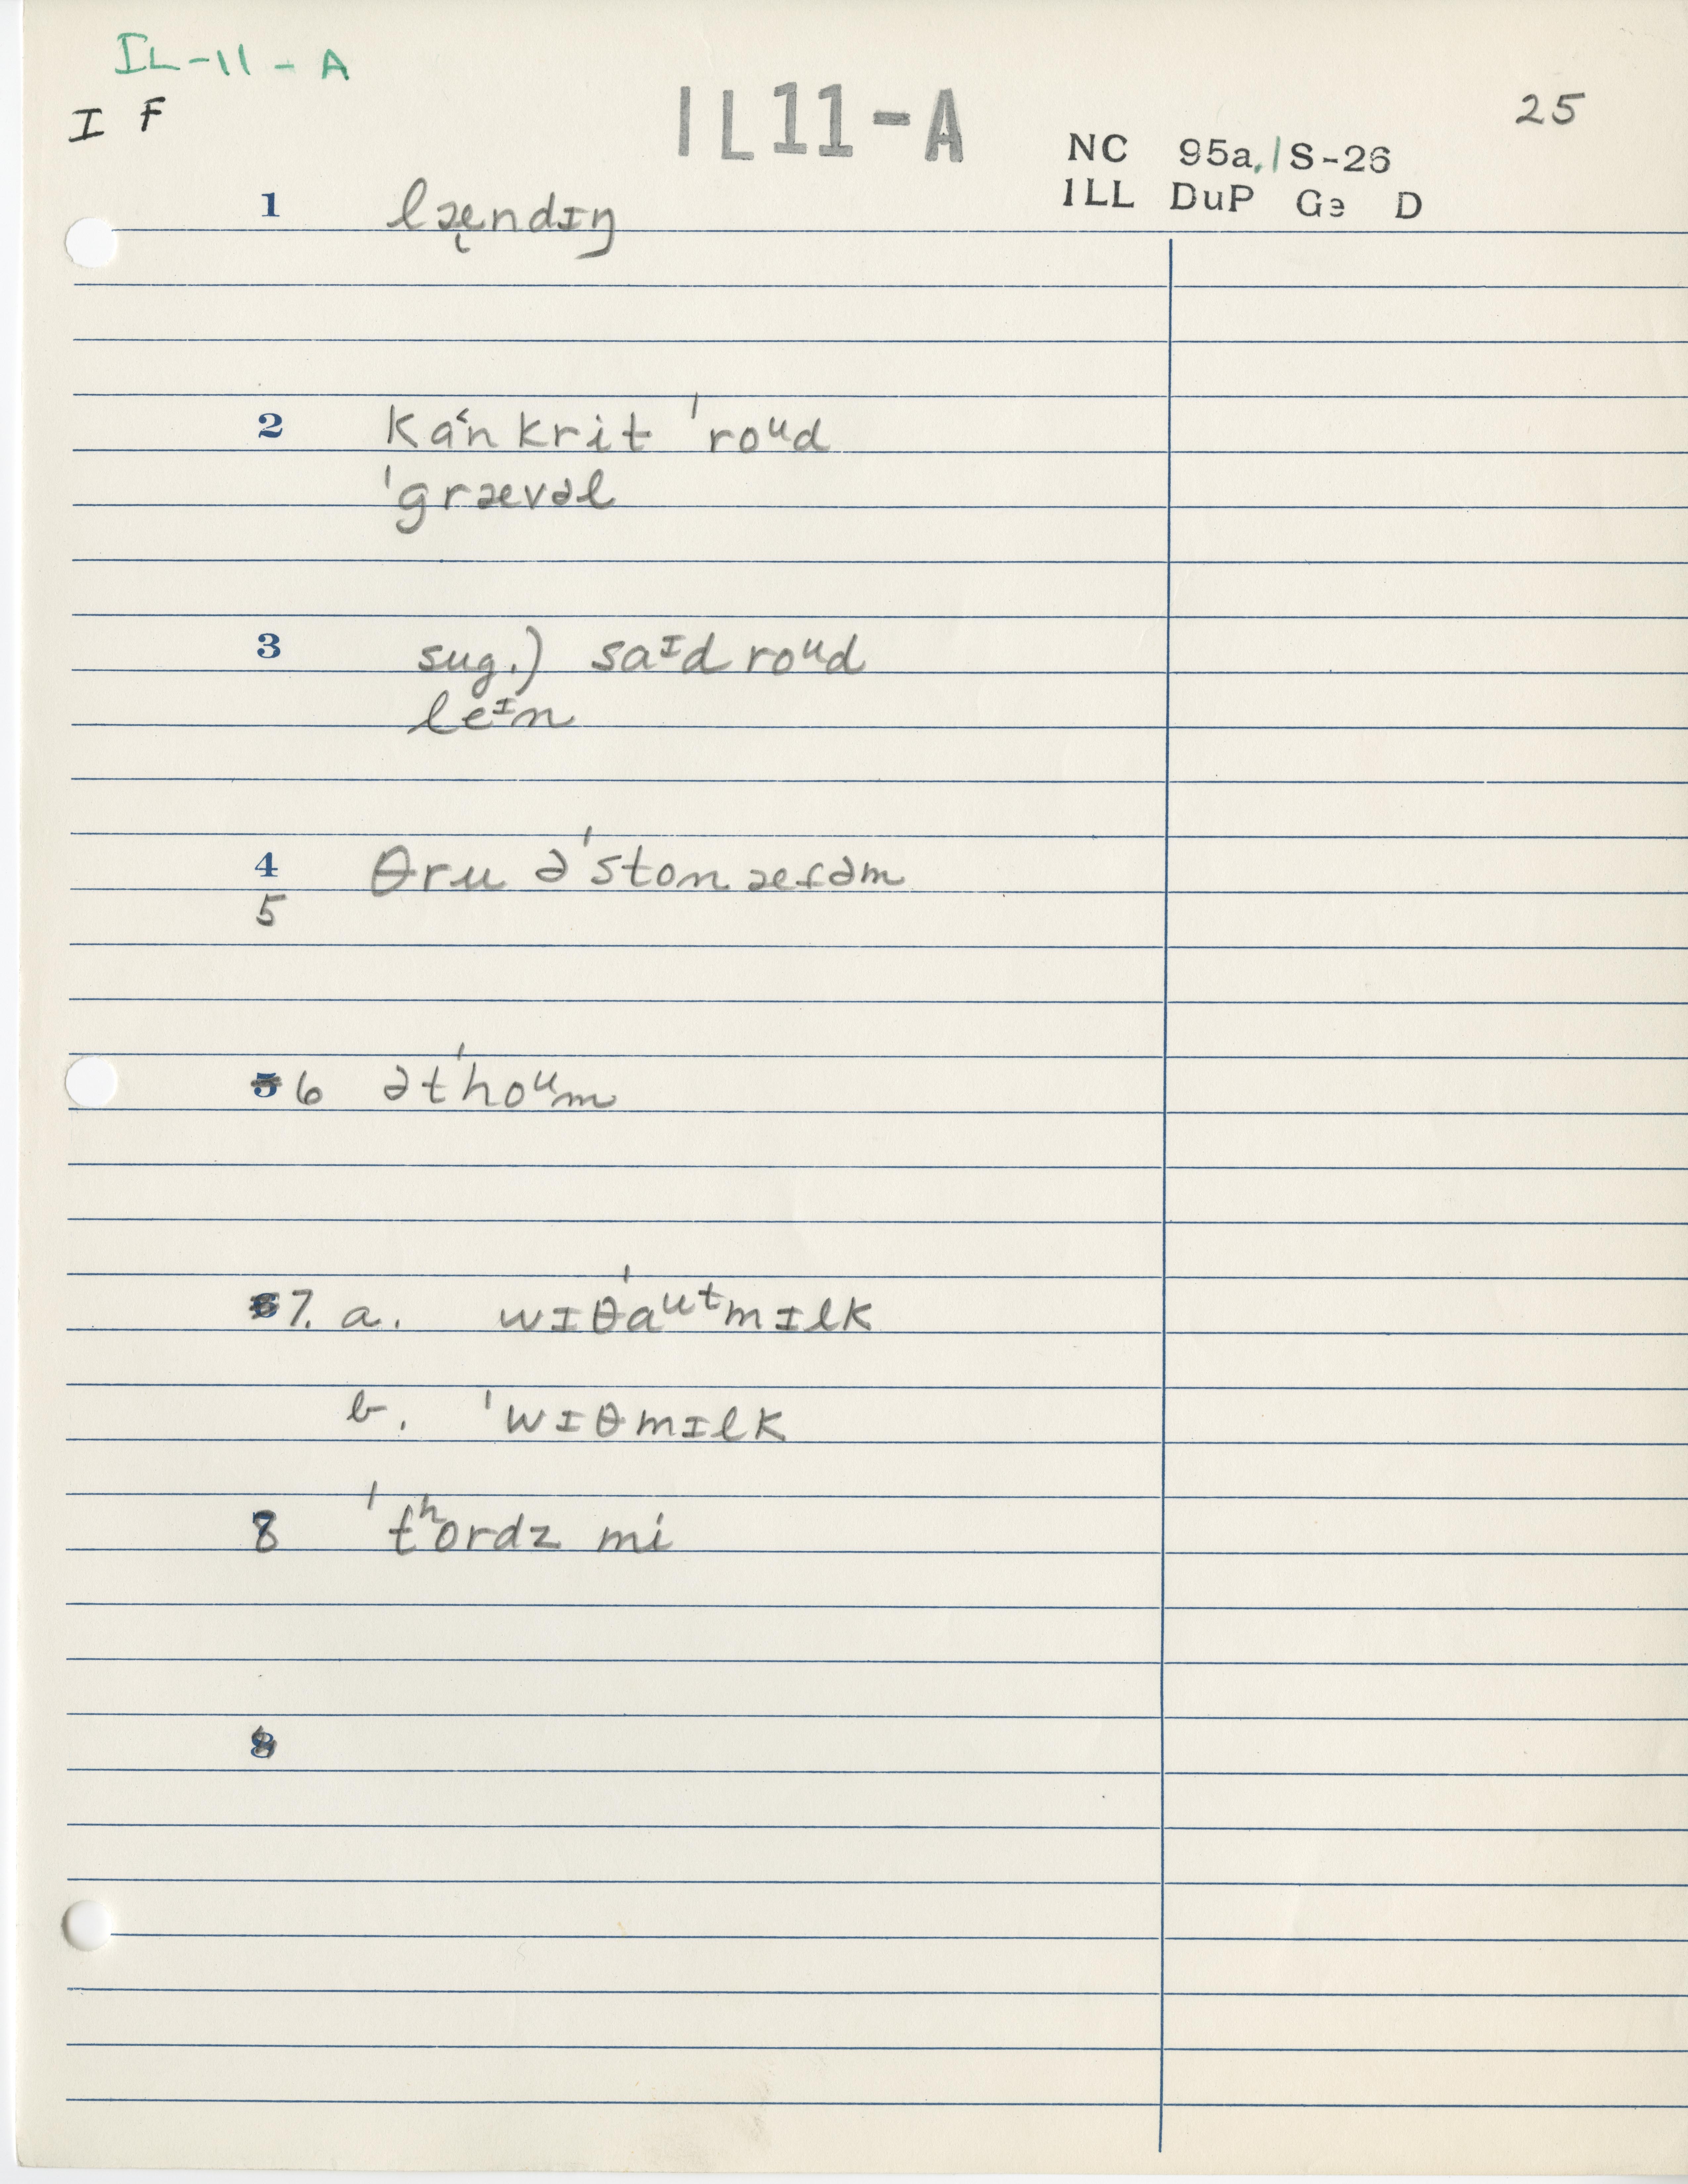 IL-11-A
I F
IL11-A
25
NC 95a./S-26
ILL DuP Ge D
1 læ̨ndɪŋ
2 ka˂nkrit ˈroᵘd
ˈgrævəl
3 sug.) saᶦd roᵘd
leᶦn
4 θru əˈston æfəm
5
6 ətˈhoᵘm
7. a. wɪˈθaᵘᵗmɪlk
b. ˈwɪθmɪlk
8 ˈtʰordz mi
8